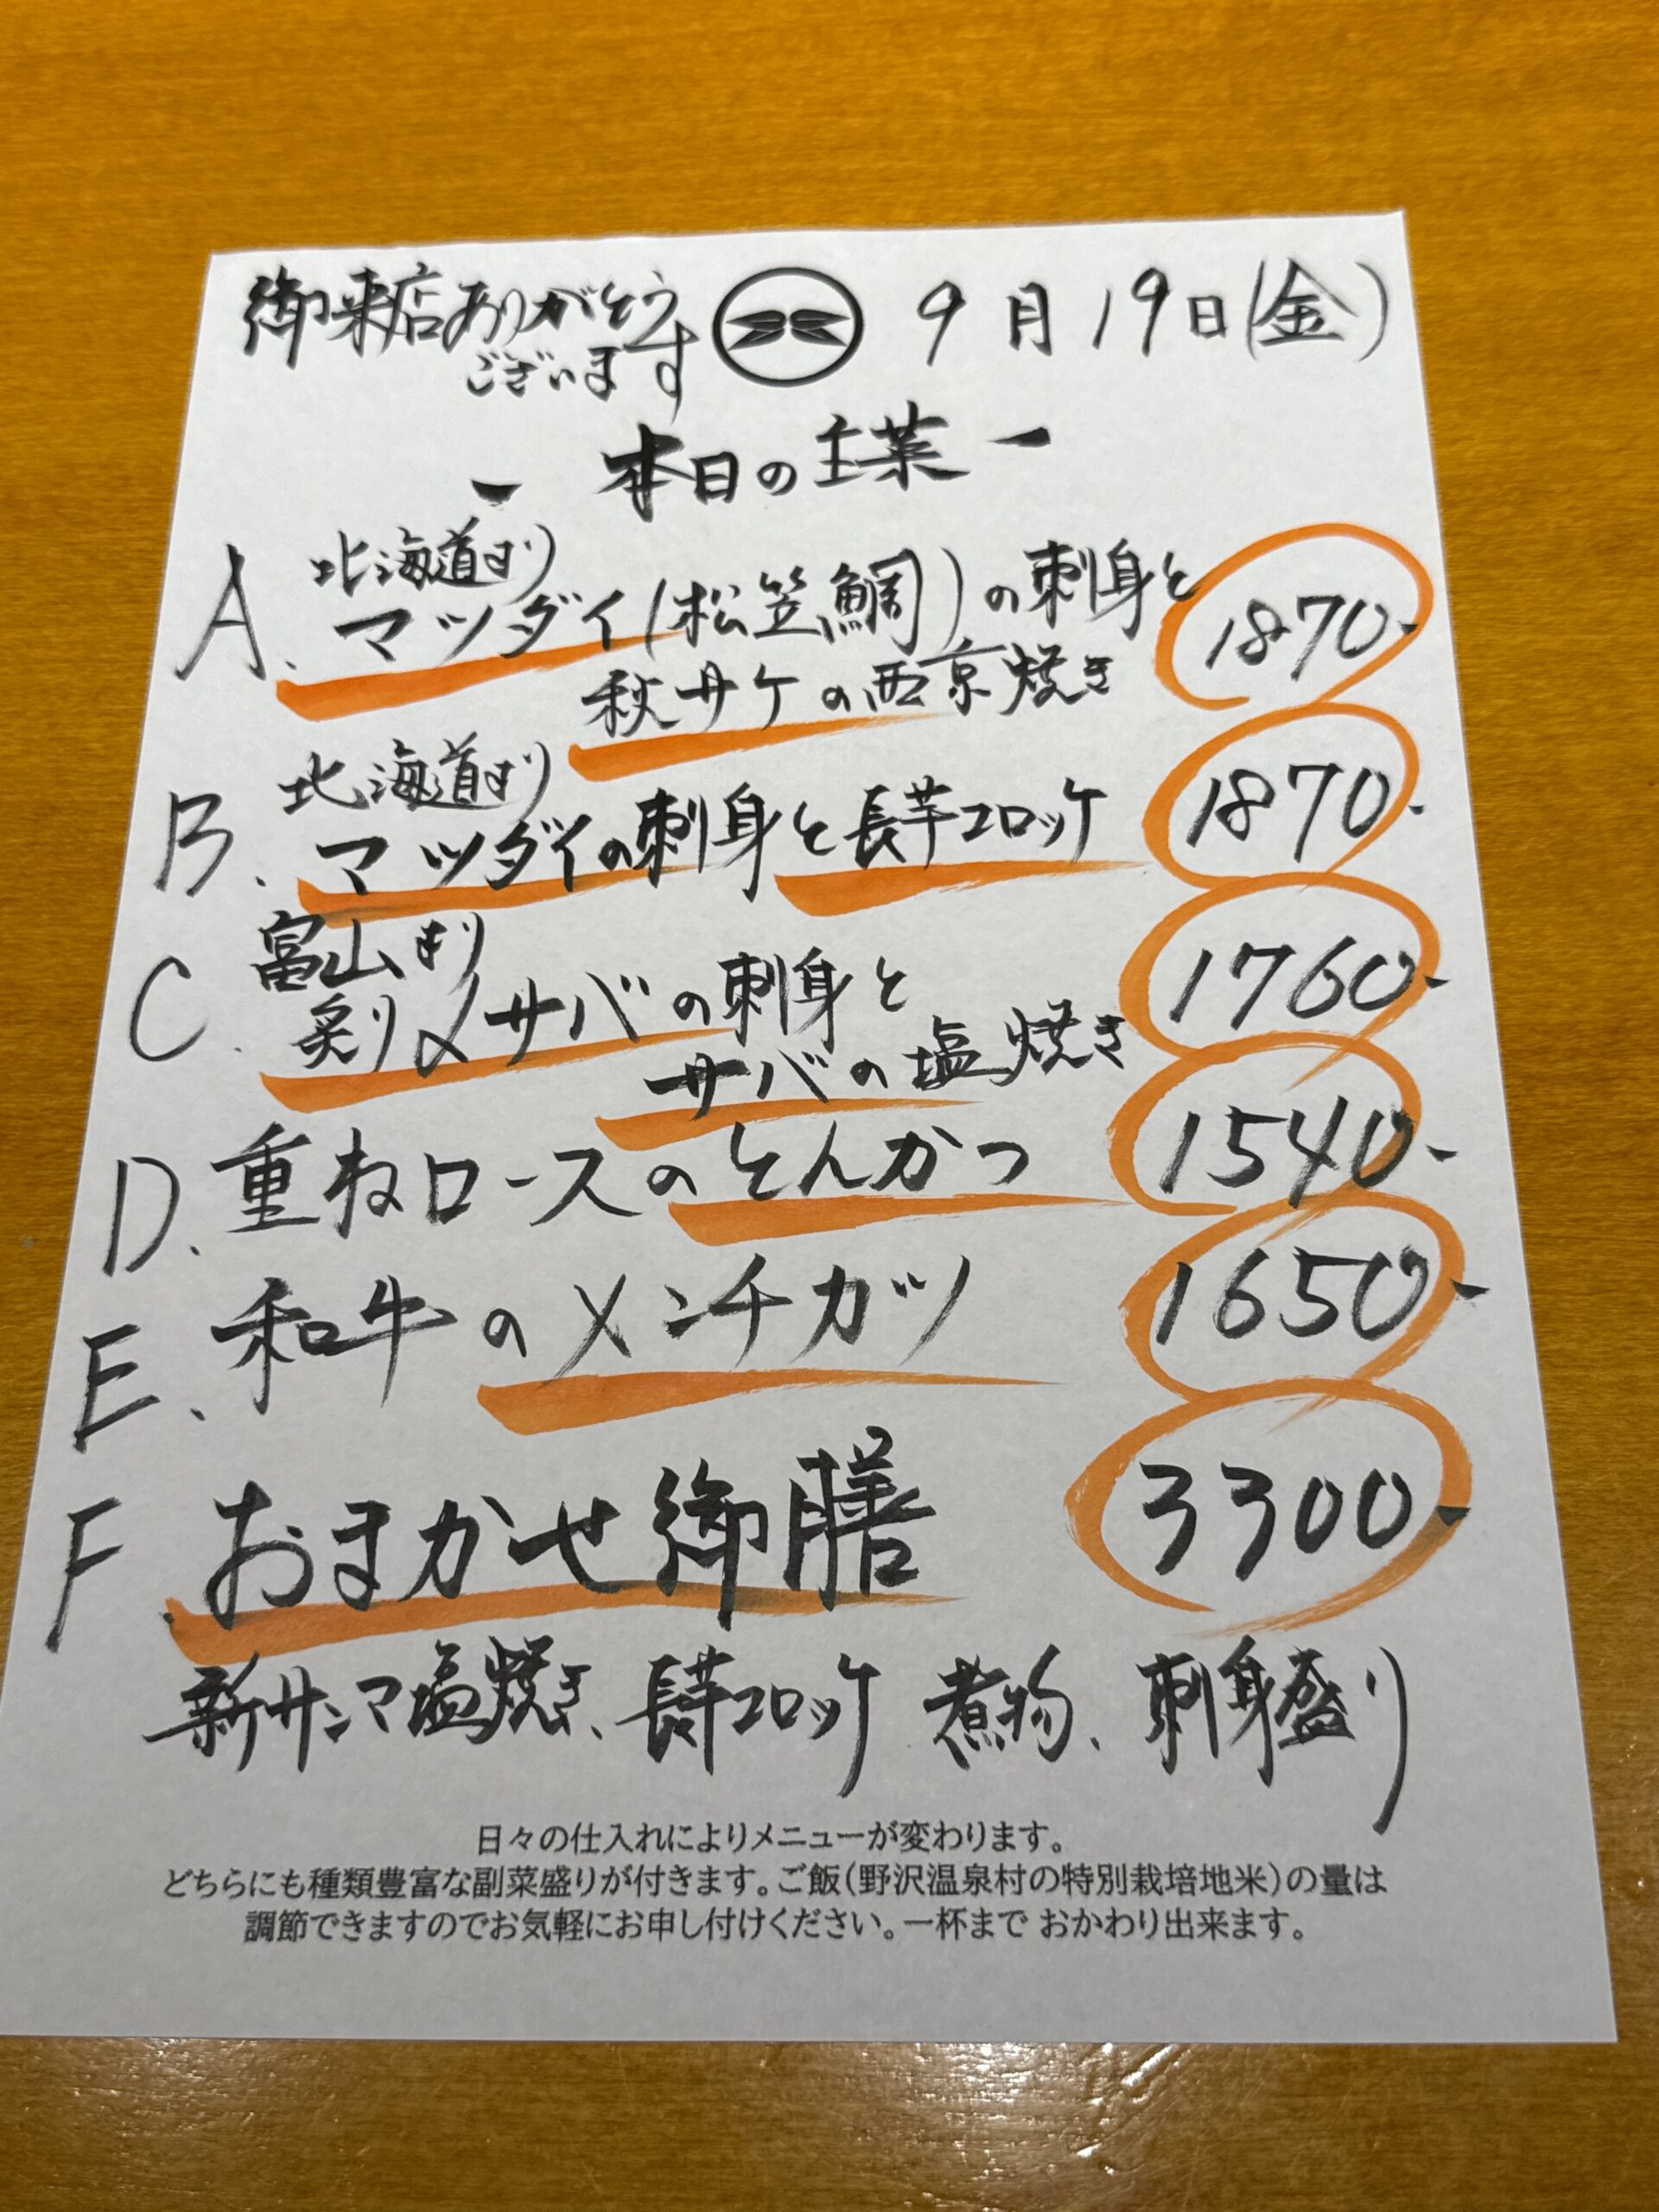 御来店ありがとう
ございます
9月19日(金)
- 本日の主菜 -
A. 北海道より
マツダイ(松笠鯛)の刺身と
秋サケの西京焼き
1870-
B. 北海道より
マツダイの刺身と長芋コロッケ
1870-
C. 富山より
炙り〆サバの刺身と
サバの塩焼き
1760-
D. 重ねロースのとんかつ
1540-
E. 和牛のメンチカツ
1650-
F. おまかせ御膳
3300-
新サンマ塩焼き、長芋コロッケ 煮物、刺身盛り
日々の仕入れによりメニューが変わります。
どちらにも種類豊富な副菜盛りが付きます。ご飯(野沢温泉村の特別栽培地米)の量は
調節できますのでお気軽にお申し付けください。一杯まで おかわり出来ます。